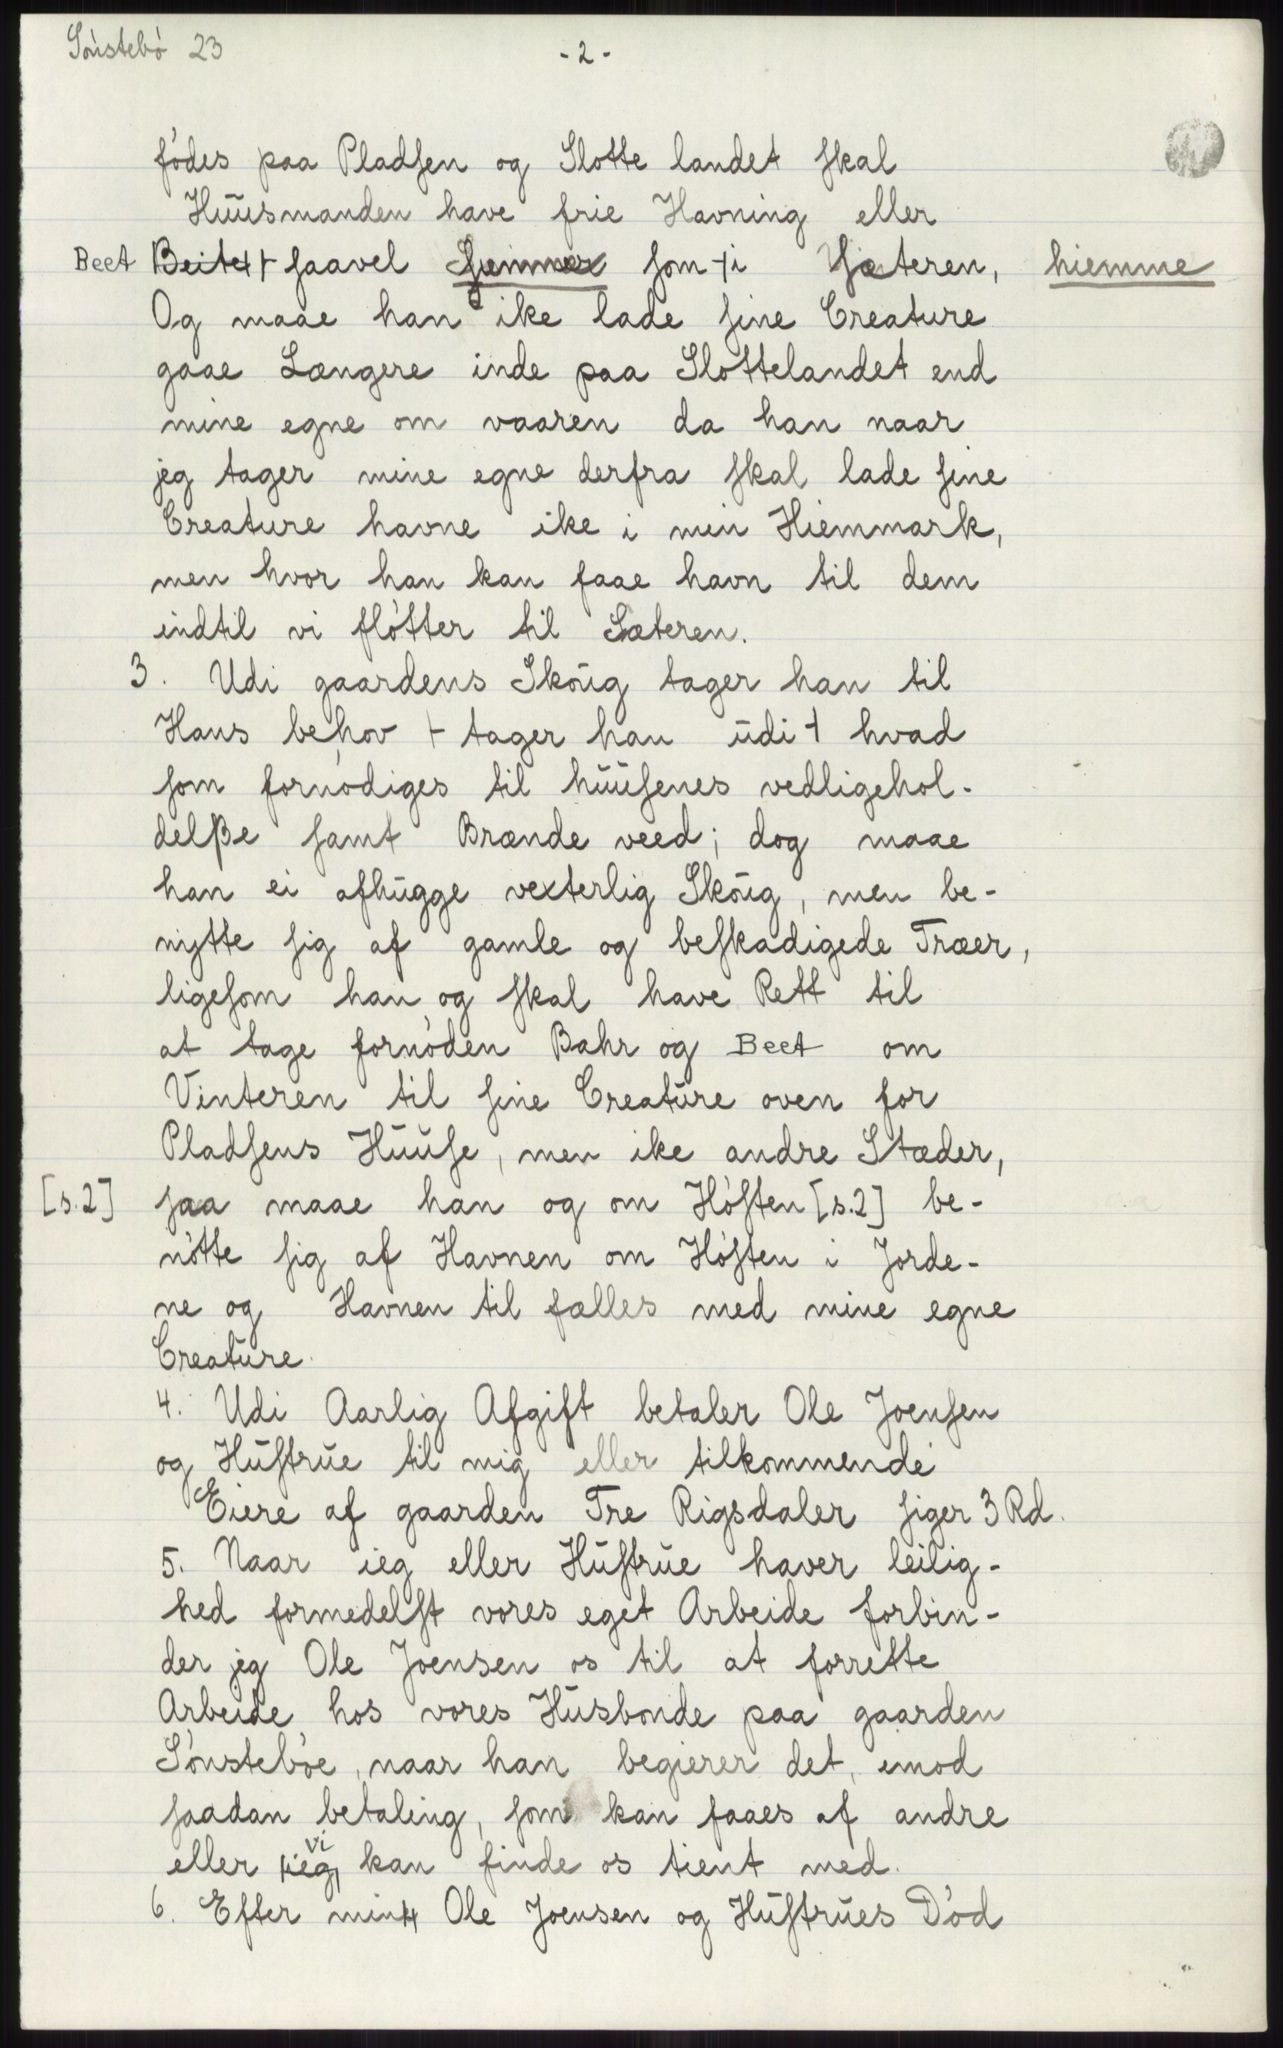 Sønstebø 23
- 2 -
fødes paa Pladsen og Slotte landet skal
Huusmanden have frie Havning eller
Beet Beite ⊢ saavel hiemmen som ⊣ i Sæteren, hiemme
Og maae han ike lade sine Creature
gaae Længere inde paa Slottelandet end
mine egne om vaaren da han naar
jeg tager mine egne derfra skal lade sine
Creature havne ike i min Hiemmark,
men hvor han kan faae havn til dem
indtil vi fløtter til Sæteren.
3. Udi gaardens Skoug tager han til
Hans behov ⊢ tager han udi ⊣ hvad
som fornødiges til huusenes vedligehol-
delße samt Brænde veed; dog maae
han ei afhugge vexterlig Skoug, men be-
nytte sig af gamle og beskadigede Træer,
ligesom han og skal have Rett til
at tage fornøden Bahr og Beet om
Vinteren til sine Creature oven for
Pladsens Huuse, men ike andre Stæder,
[s.2] saa maae han og om Høsten [s.2] be-
nøtte sig af Havnen om Høsten i Jorde-
ne og Havnen til fælles med mine egne
Creature.
4. Udi Aarlig Afgift betaler Ole Joensen
og Hustrue til mig eller tilkommende
Eiere af gaarden Tre Rigsdaler siger 3 Rd.
5. Naar ieg eller Hustrue haver leilig-
hed formedelst vores eget Arbeide forbin-
der jeg Ole Joensen os til at forrette
Arbeide hos vores Husbonde paa gaarden
Sønstebøe, naar han begierer det, imod
saadan betaling, som kan faaes af andre
eller ieg vi kan finde os tient med.
6. Efter min Ole Joensen og Hustrues Død